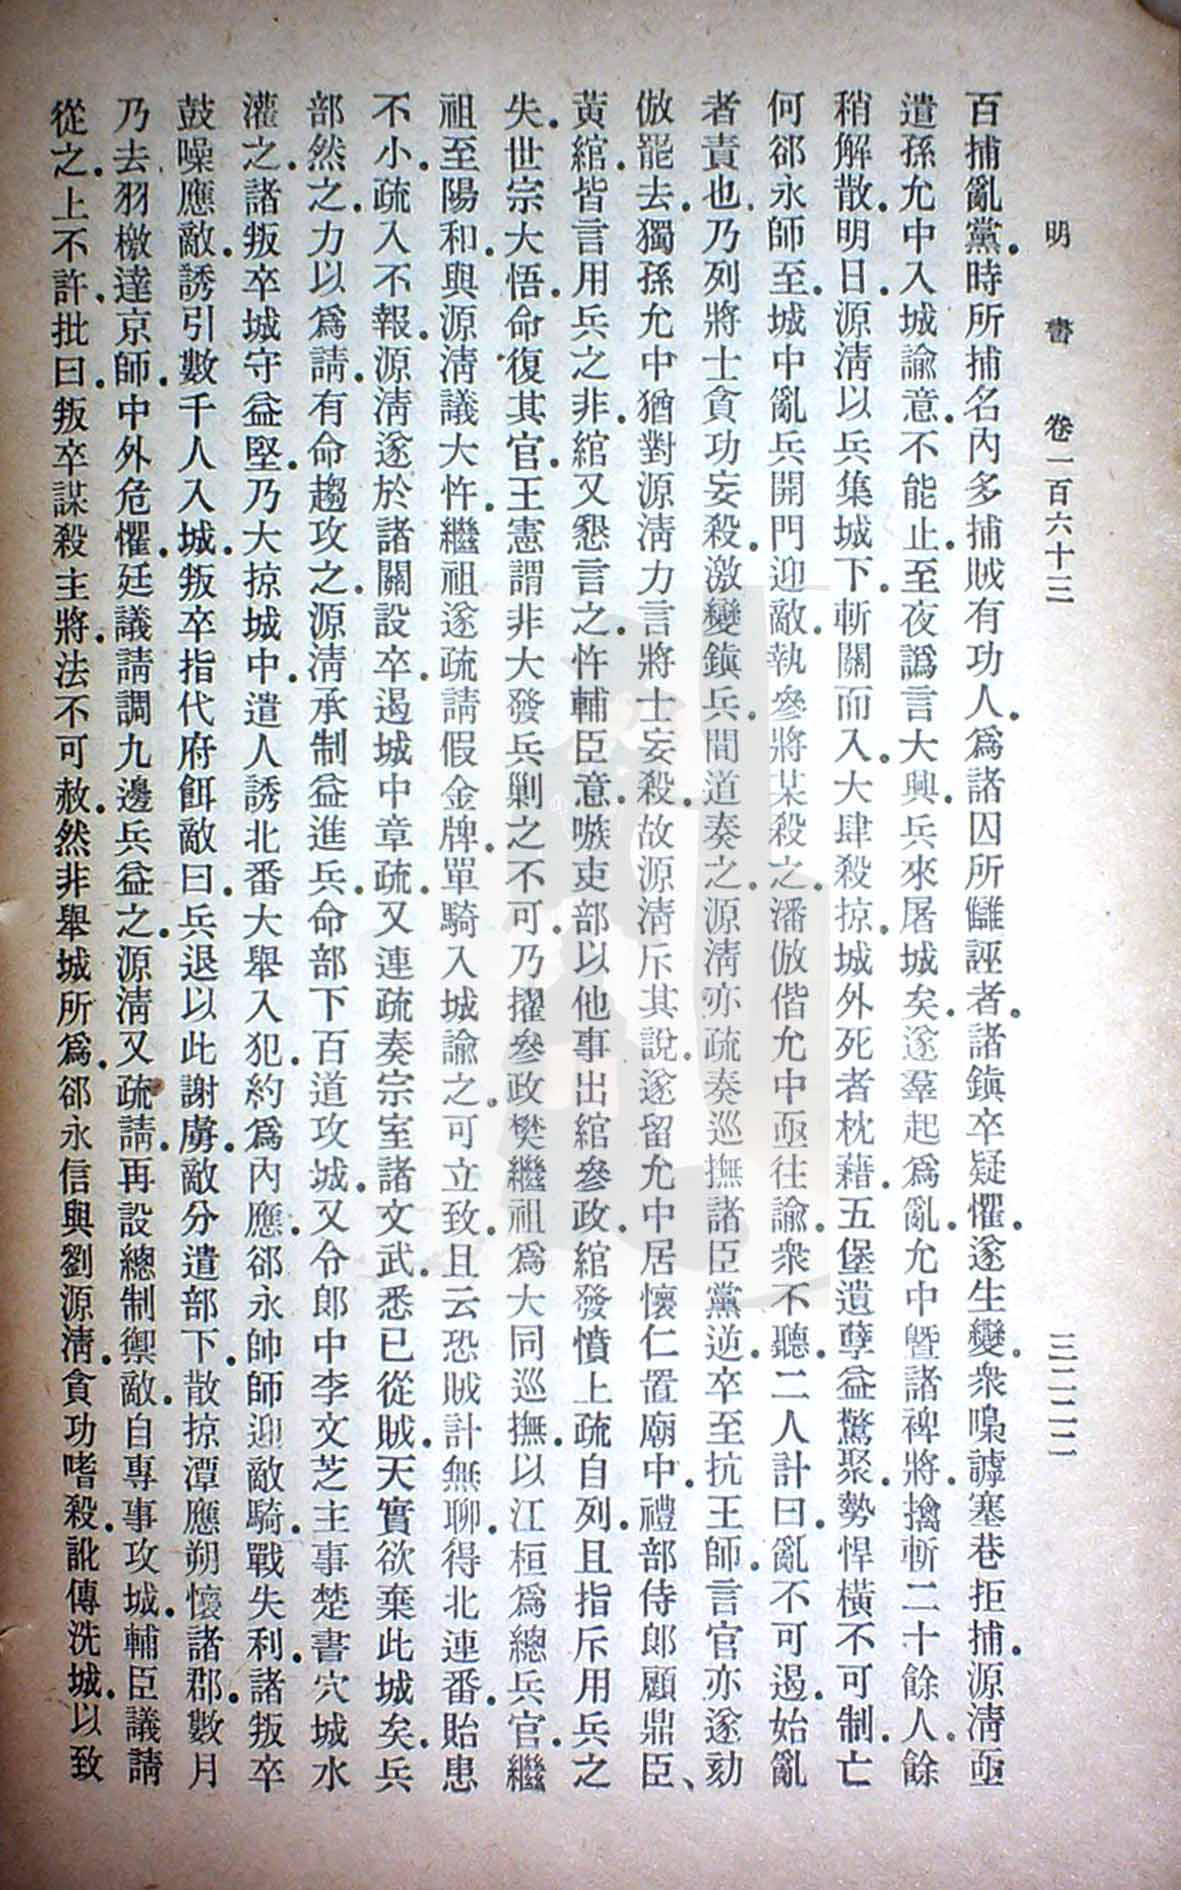 明書　卷一百六十三　三二二二
百捕亂黨。時所捕名內多捕賊有功人。爲諸囚所讎誣者。諸鎭卒疑懼。遂生變。衆嘷謼塞巷拒捕。源淸亟
遣孫允中入城諭意。不能止。至夜譌言大興。兵來屠城矣。遂羣起爲亂。允中曁諸裨將。擒斬二十餘人。餘
稍解散。明日。源淸以兵集城下。斬關而入。大肆殺掠。城外死者枕藉。五堡遺孽益驚聚。勢悍橫不可制。亡
何郤永師至。城中亂兵開門迎敵。執參將某殺之。潘倣偕允中亟往諭。衆不聽。二人計曰。亂不可遏。始亂
者責也。乃列將士貪功妄殺。激變鎭兵。間道奏之。源淸亦疏奏巡撫諸臣黨逆。卒至抗王師。言官亦遂劾
倣罷去。獨孫允中猶對源淸力言將士妄殺。故源淸斥其說。遂留允中居懷仁置廟中。禮部侍郎顧鼎臣、
黃綰。皆言用兵之非。綰又懇言之。忤輔臣意。嗾吏部以他事出綰參政。綰發憤上疏自列。且指斥用兵之
失。世宗大悟。命復其官。王憲謂非大發兵剿之不可。乃擢參政樊繼祖。爲大同巡撫。以江桓爲總兵官。繼
祖至陽和。與源淸議大忤。繼祖遂疏請假金牌。單騎入城諭之。可立致。且云恐賊計無聊。得北連番。貽患
不小。疏入不報。源淸遂於諸關設卒。遏城中章疏。又連疏奏宗室諸文武。悉已從賊。天實欲棄此城矣。兵
部然之。力以爲請。有命趨攻之。源淸承制益進兵。命部下百道攻城。又令郎中李文芝主事楚書穴城水
灌之。諸叛卒城守益堅。乃大掠城中。遣人誘北番大舉入犯。約爲內應。郤永帥師迎敵騎。戰失利。諸叛卒
鼓噪應敵。誘引數千人入城。叛卒指代府餌敵曰。兵退以此謝虜。敵分遣部下。散掠潭應朔懷諸郡。數月
乃去羽檄達京師。中外危懼。廷議請調九邊兵益之。源淸又疏請。再設總制禦敵。自專事攻城。輔臣議請
從之。上不許。批曰。叛卒謀殺主將。法不可赦。然非舉城所爲。郤永信與劉源淸。貪功嗜殺。訛傳洗城。以致